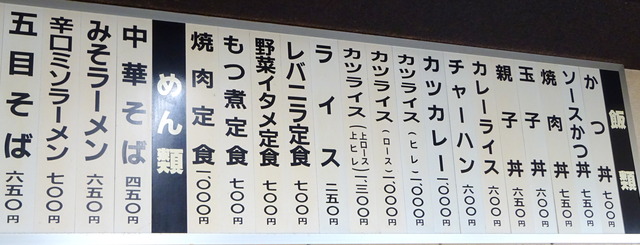 飯類
かつ丼 七〇〇円
ソースかつ丼 七五〇円
焼肉丼 七五〇円
玉子丼 六〇〇円
親子丼 六五〇円
カレーライス 六〇〇円
チャーハン 六〇〇円
カツカレー 一、〇〇〇円
カツライス（ヒレ） 一、〇〇〇円
カツライス（ロース） 一、〇〇〇円
カツライス（上ロース 上ヒレ） 一、三〇〇円
ライス 二五〇円
レバニラ定食 七〇〇円
野菜イタメ定食 七〇〇円
もつ煮定食 七〇〇円
焼肉定食 一、〇〇〇円
めん類
中華そば 四五〇円
みそラーメン 六五〇円
辛口ミソラーメン 七〇〇円
五目そば 六五〇円